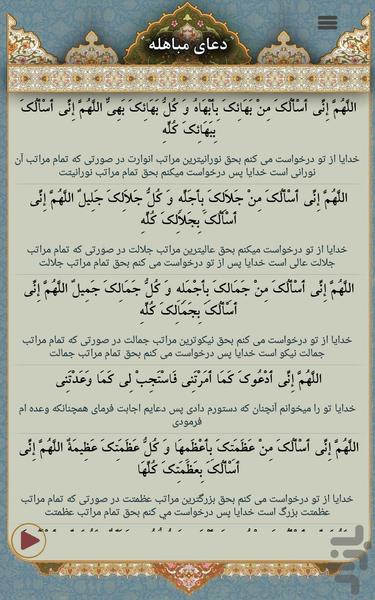 دعای مباهله
اللَّهُمَّ إِنِّی أَسْأَلُکَ مِنْ بَهَائِکَ بِأَبْهَاهُ وَ کُلُّ بَهَائِکَ بَهِیٌّ اللَّهُمَّ إِنِّی أَسْأَلُکَ
بِبَهَائِکَ کُلِّهِ
خدایا از تو درخواست می کنم بحق نورانیترین مراتب انوارت در صورتی که تمام مراتب آن
نورانی است خدایا پس درخواست می کنم بحق تمام مراتب نورانیتت
اللَّهُمَّ إِنِّی أَسْأَلُکَ مِنْ جَلاَلِکَ بِأَجَلِّهِ وَ کُلُّ جَلاَلِکَ جَلِیلٌ اللَّهُمَّ إِنِّی
أَسْأَلُکَ بِجَلاَلِکَ کُلِّهِ
خدایا از تو درخواست میکنم بحق عالیترین مراتب جلالت در صورتی که تمام مراتب
جلالت عالی است خدایا پس از تو درخواست می کنم بحق تمام مراتب جلالت
اللَّهُمَّ إِنِّی أَسْأَلُکَ مِنْ جَمَالِکَ بِأَجْمَلِهِ وَ کُلُّ جَمَالِکَ جَمِیلٌ اللَّهُمَّ إِنِّی
أَسْأَلُکَ بِجَمَالِکَ کُلِّهِ
خدایا از تو درخواست می کنم بحق نیکوترین مراتب جمالت در صورتی که تمام مراتب
جمالت نیکو است خدایا پس درخواست می کنم بحق تمام مراتب جمالت
اللَّهُمَّ إِنِّی أَدْعُوکَ کَمَا أَمَرْتَنِی فَاسْتَجِبْ لِی کَمَا وَعَدْتَنِی
خدایا تو را میخوانم آنچنان که دستورم دادی پس دعایم اجابت فرمای همچنانکه وعده ام
فرمودی
اللَّهُمَّ إِنِّی أَسْأَلُکَ مِنْ عَظَمَتِکَ بِأَعْظَمِهَا وَ کُلُّ عَظَمَتِکَ عَظِیمَةٌ اللَّهُمَّ إِنِّی
أَسْأَلُکَ بِعَظَمَتِکَ کُلِّهَا
خدایا از تو درخواست می کنم بحق بزرگترین مراتب عظمتت در صورتی که تمام مراتب
عظمتت بزرگ است خدایا پس درخواست می کنم بحق تمام مراتب عظمتت
بازار